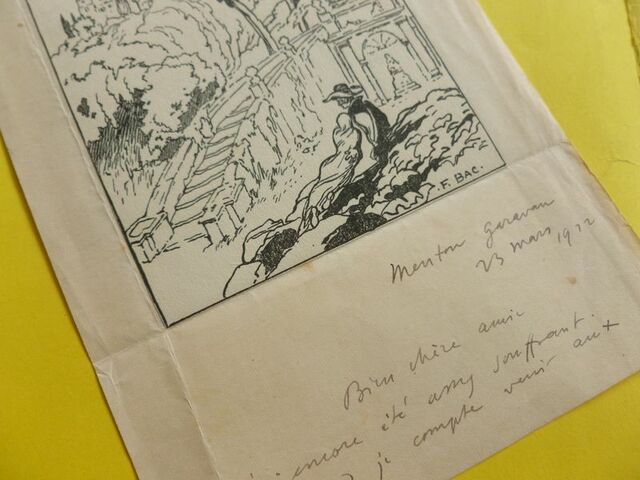 F. BAC.
Menton Garavan
23 mars 1922
Bien chère amie
encore été assez souffrant.
je compte venir aux